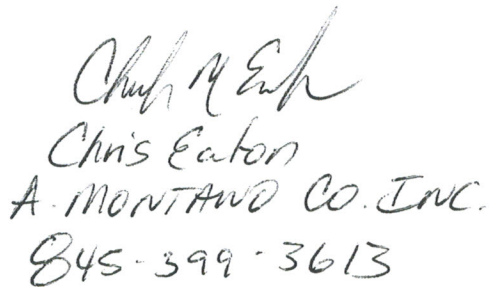 Chris Eaton
A. MONTANO CO. INC.
845-399-3613